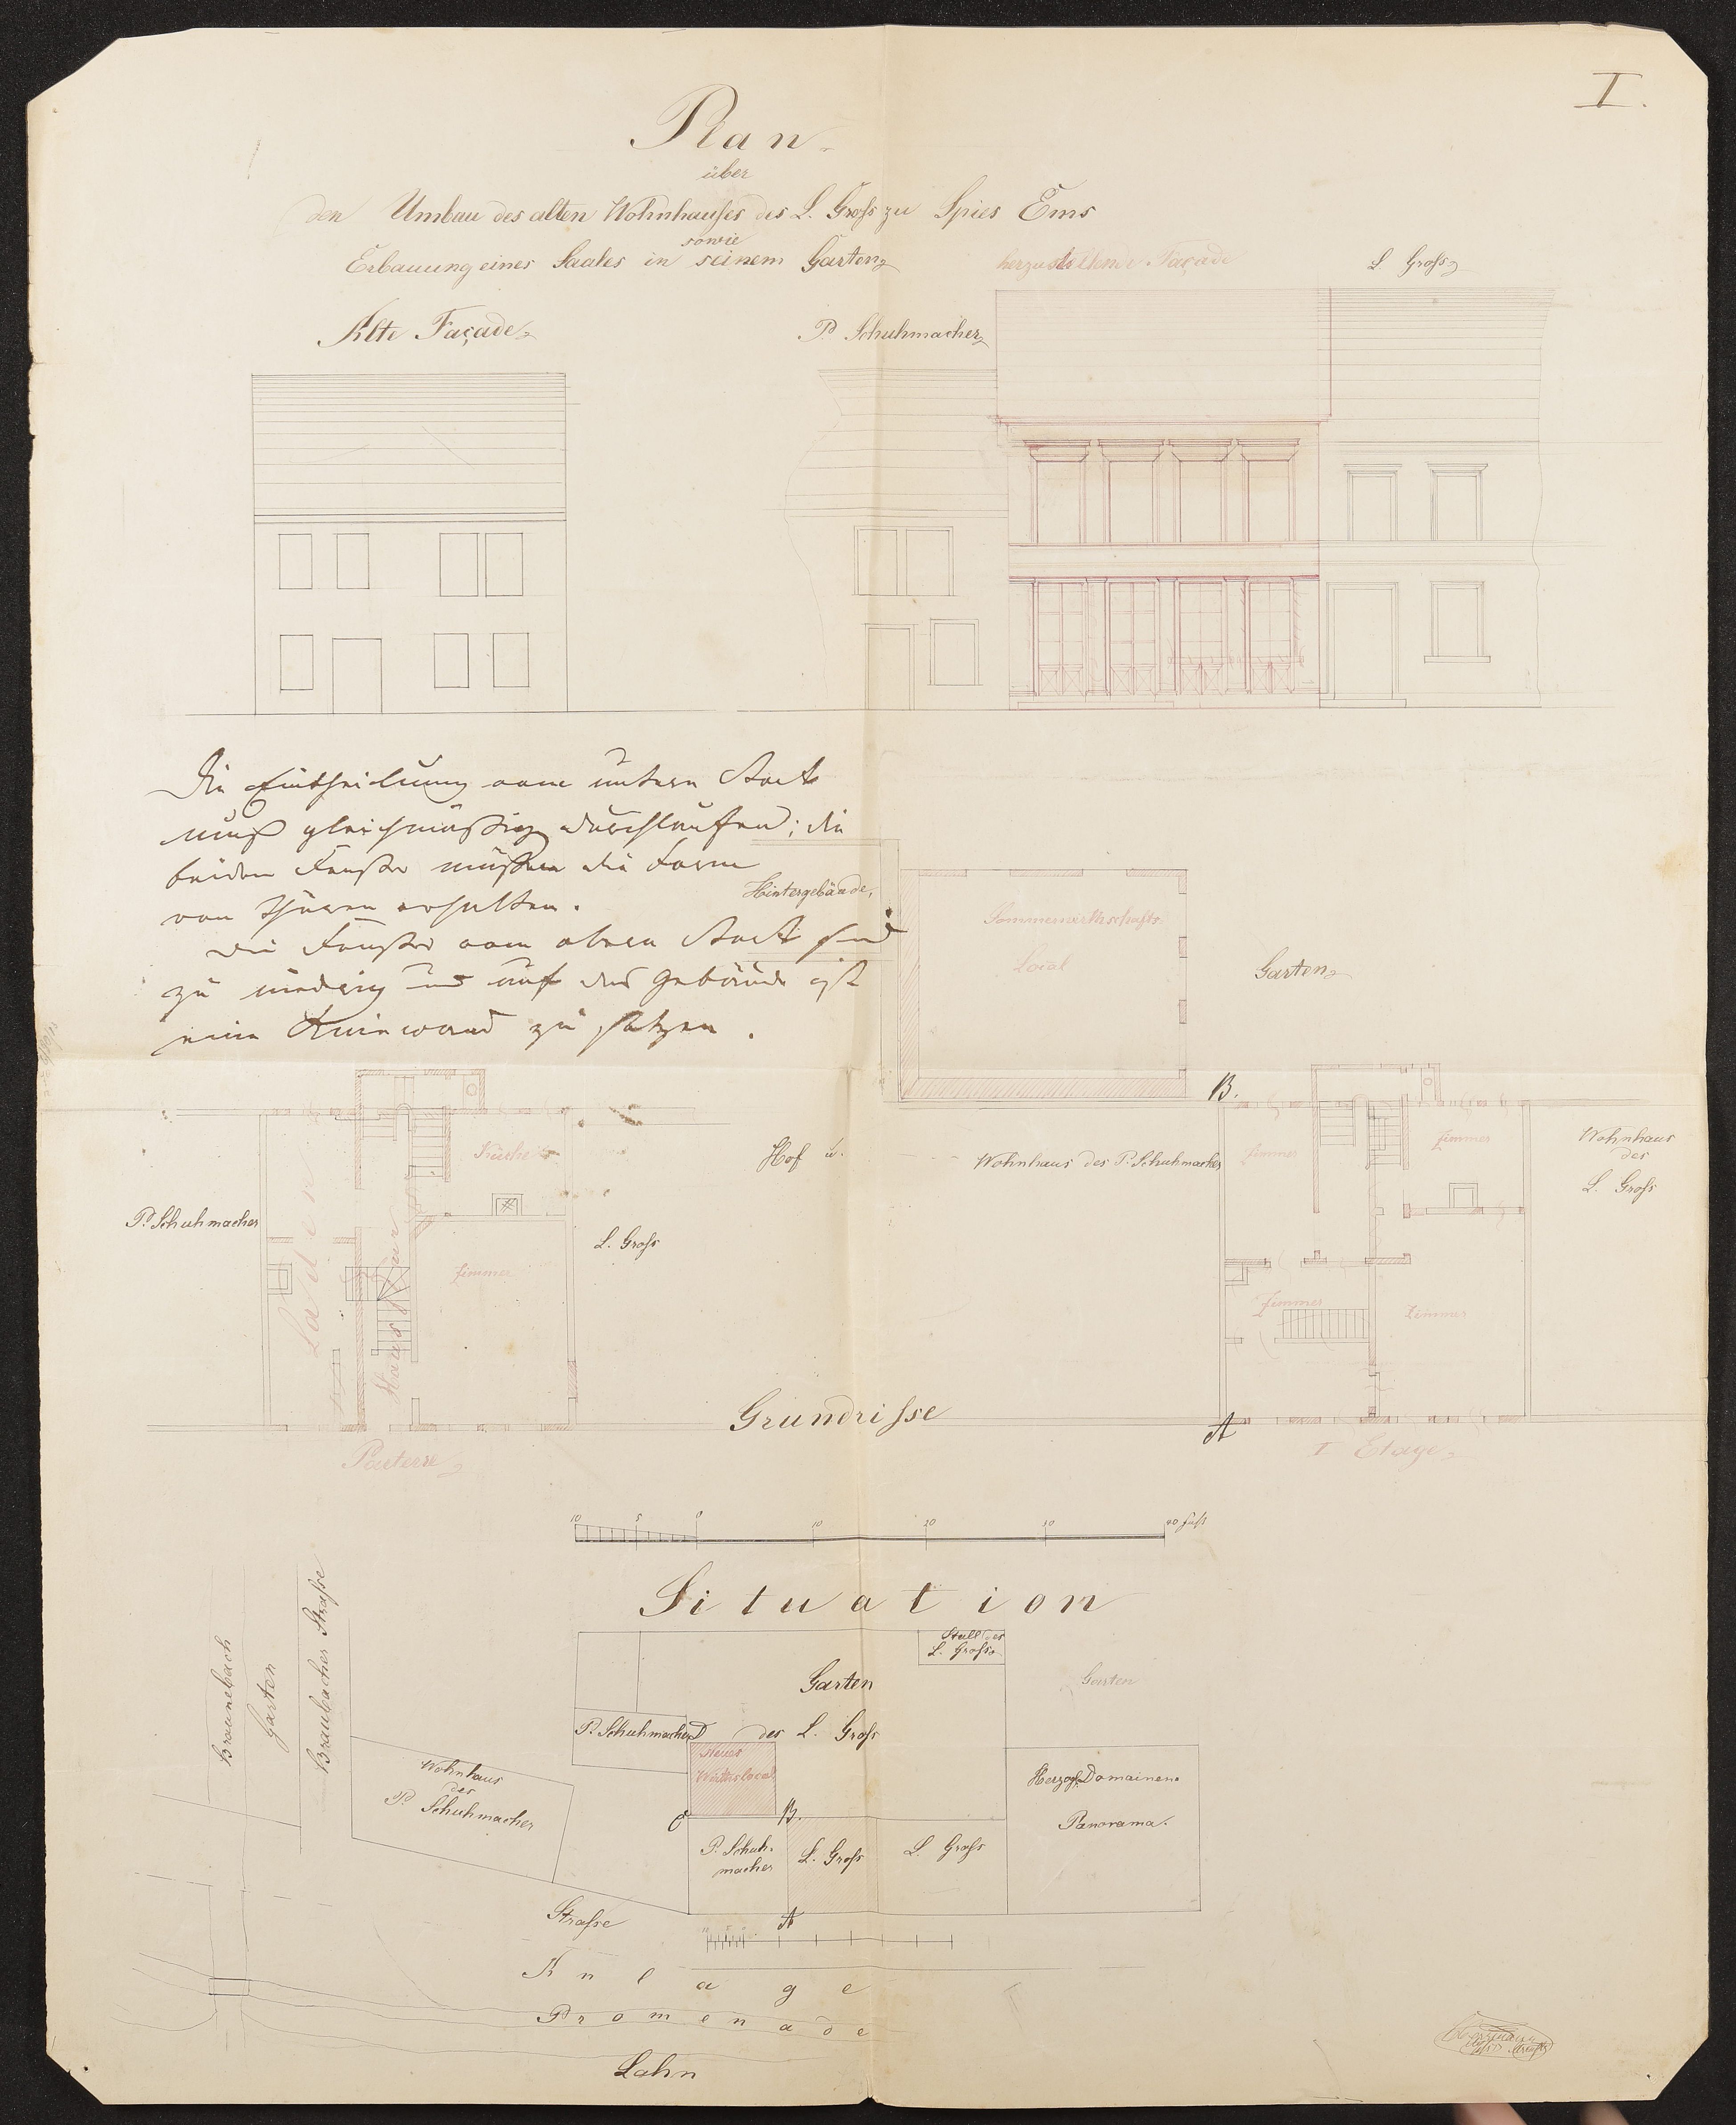 I.
Plan
über
den Umbau des alten Wohnhauses des L. Groſs zu Spies Ems
sowie
Erbauung eines Saales in seinem Garten
herzustellende Façade
L. Groſs
Alte Façade
P. Schuhmacher
Die Eintheilung vom untern Stock
muß gleichmäßig durchlaufen; die
beiden Fenster müßen die Form
von Thüren erhalten.
Die Fenster vom obern Stock sind
zu niedrig und auf das Gebäude ist
eine Kniewand zu setzen.
Hintergebäude,
Sommerwirthschafts
Local
Garten
B.
Küche
Zimmer
Zimmer
Hof u.
Wohnhaus des P. Schuhmacher
Wohnhaus
des
L. Groſs
P. Schuhmacher
L. Groſs
Laden
Hausflur
Zimmer
Zimmer
Zimmer
Grundriſse
A
Parterre
I Etage
10 5 0 10 20 30 40 Fuſs
Situation
Braunebach
Garten
Braubacher Straſse
Stall des
L. Groſs
Garten
Garten
P. Schuhmacher
D
des L. Groſs
Neues
Wirthslocal
Wohnhaus
des
P. Schuhmacher
Herzogl. Domainen
Panorama.
C
B.
P. Schuh-
macher
L. Groſs
L. Groſs
Straſse
A
Anlage
Promenade
Lahn